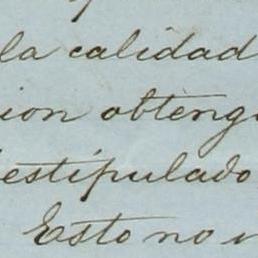 la calidad
ion obteng
estipulado
Esto no